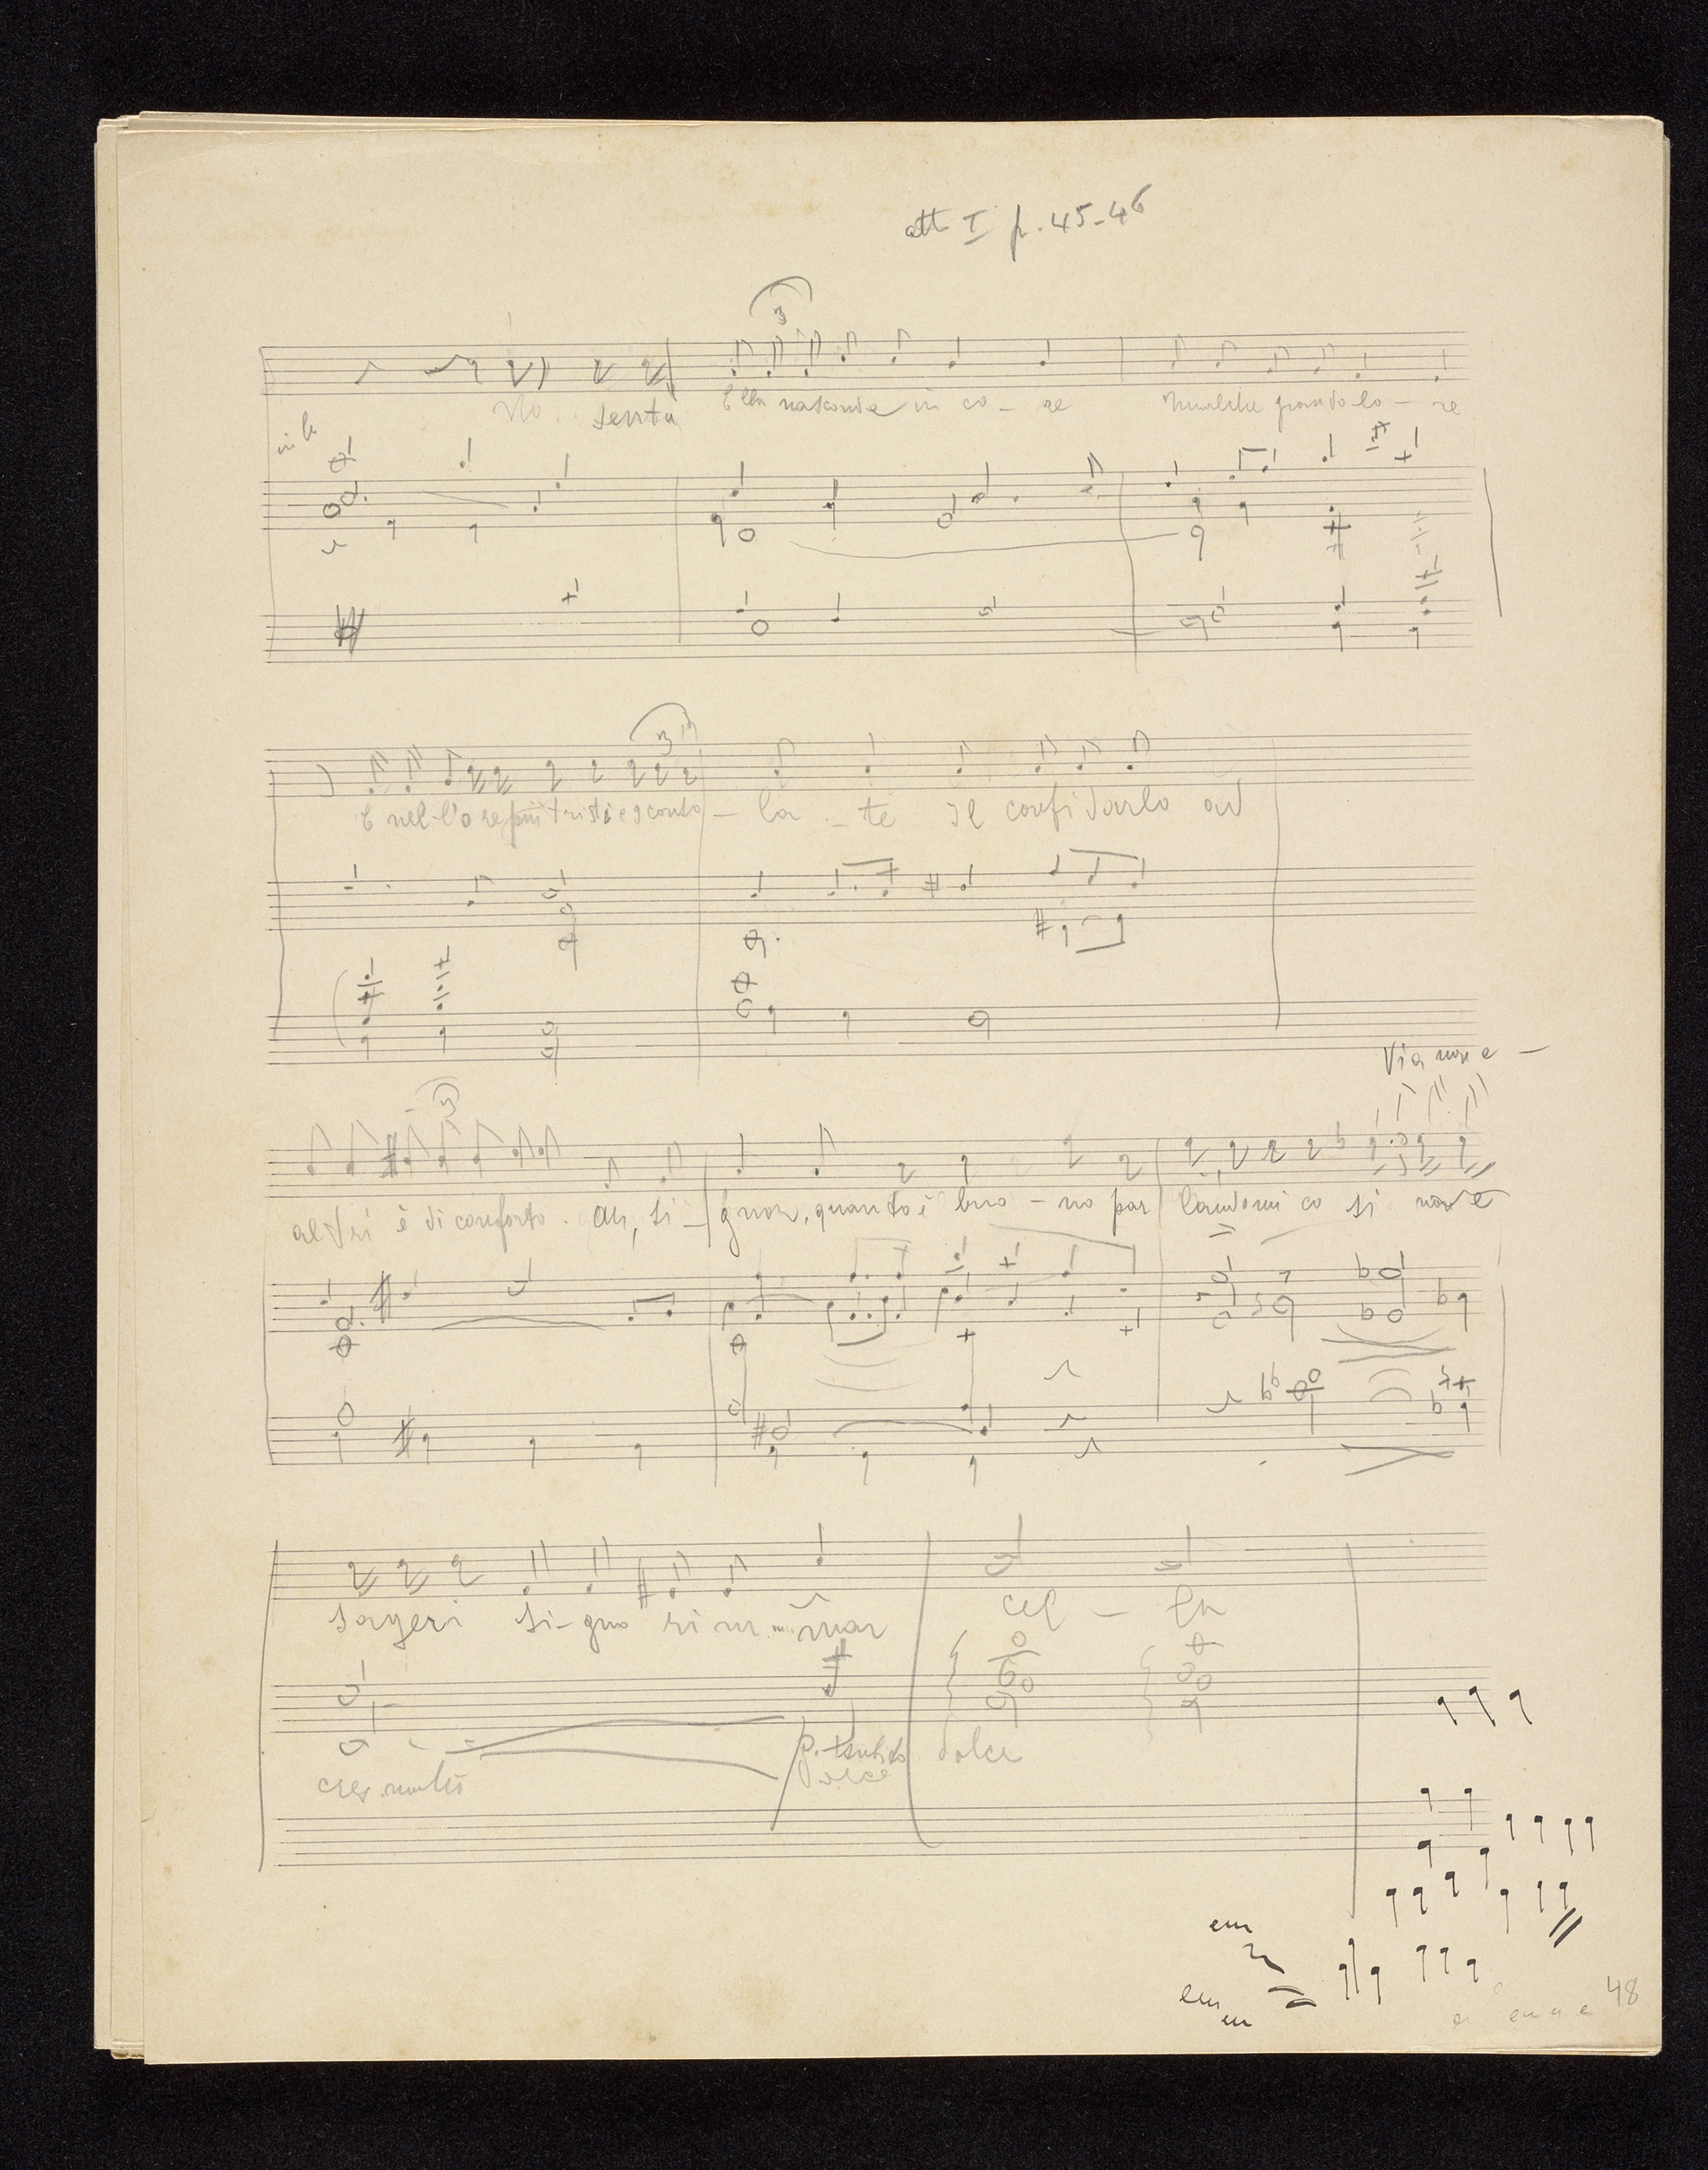 atto I p. 45-46
3
No... senta Ella nasconde in co - re
in le
3
E nell'ore più tristi e sconso - la - te il confidarlo ad
Via non e -
3
altri è di conforto. Ah, si - gnor, quanto è buo - no par landomi co si non è
sogeri si - gno ri m... man
cel - la
cres. molto p. subito dolce dolce
em
em
em
48